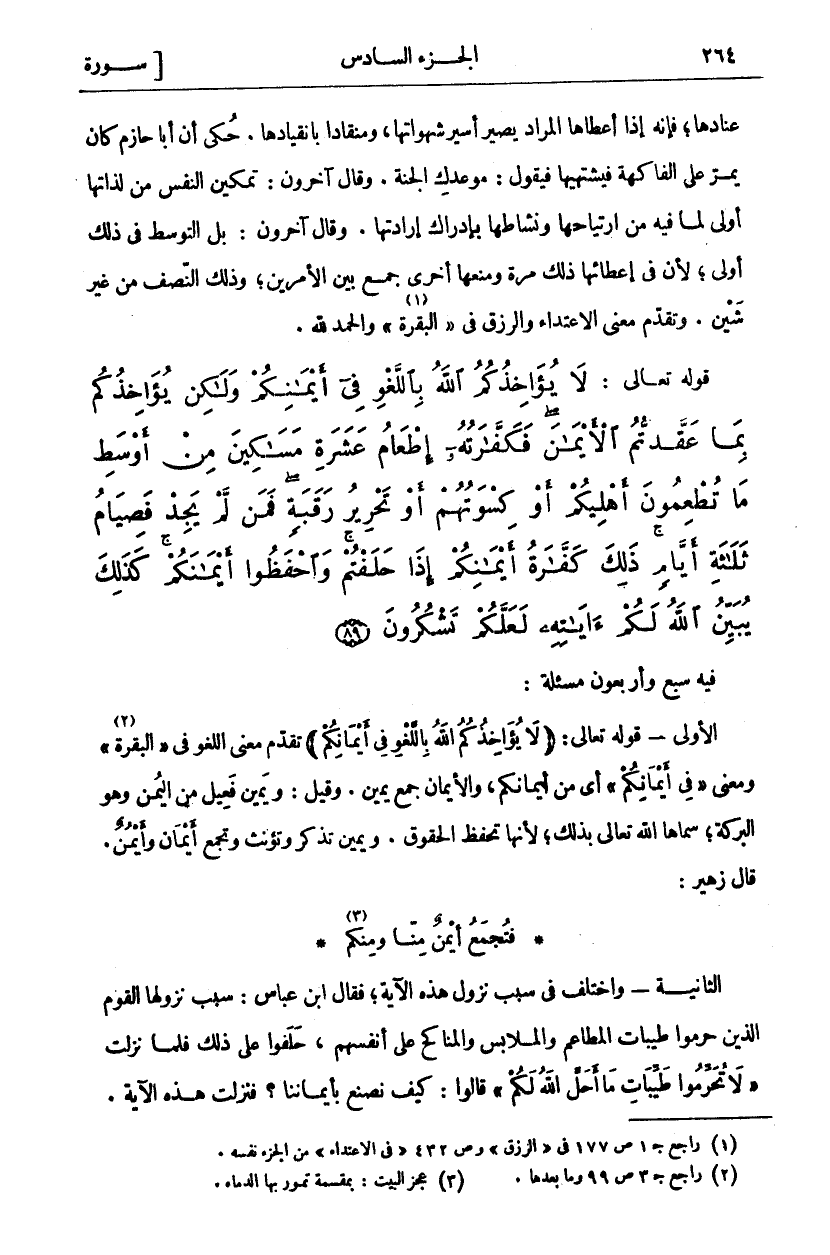 ٢٦٤ الجـزء السادس [ ســورة
عنادها؛ فإنه إذا أعطاها المراد يصير أسير شهواتها، ومنقادا بانقيادها . حُكى أن أبا حازم كان
يمـرّ على الفاكهة فيشتهيها فيقول : موعدك الجنة . وقال آخرون : تمكين النفس من لذاتها
أولى لمـا فيه من ارتياحها ونشاطها بإدراك إرادتها . وقال آخرون : بل التوسط فى ذلك
أولى ؛ لأن فى إعطائها ذلك مرة ومنعها أخرى جمـع بين الأمرين؛ وذلك النّصف من غير
شَيْن . وتقدّم معنى الاعتداء والرزق فى « البقرة » (١) والحمد لله .
قوله تعـالى : لَا يُؤَاخِذُكُمُ ٱللَّهُ بِٱللَّغْوِ فِىٓ أَيْمَـٰنِكُمْ وَلَـٰكِن يُؤَاخِذُكُم
بِمَـا عَقَّـدتُّمُ ٱلْأَيْمَـٰنَ ۖ فَكَفَّـٰرَتُهُۥٓ إِطْعَامُ عَشَرَةِ مَسَـٰكِينَ مِنْ أَوْسَطِ
مَا تُطْعِمُونَ أَهْلِيكُمْ أَوْ كِسْوَتُهُمْ أَوْ تَحْرِيرُ رَقَبَةٍ ۖ فَمَن لَّمْ يَجِدْ فَصِيَامُ
ثَلَـٰثَةِ أَيَّامٍ ۚ ذَٰلِكَ كَفَّـٰرَةُ أَيْمَـٰنِكُمْ إِذَا حَلَفْتُمْ ۚ وَٱحْفَظُوٓا أَيْمَـٰنَكُمْ ۚ كَذَٰلِكَ
يُبَيِّنُ ٱللَّهُ لَـكُمْ ءَايَـٰتِهِۦ لَعَلَّكُمْ تَشْكُرُونَ ٨٩
فيه سبع وأربعون مسئلة :
الأولى — قوله تعالى : ﴿ لَا يُؤَاخِذُكُمُ اللَّهُ بِاللَّغْوِ فِى أَيْمَانِكُمْ ﴾ تقدّم معنى اللغو فى « البقرة » (٢)
ومعنى « فِى أَيْمَانِكُمْ » أى من أيمـانكم، والأيمان جمع يمين . وقيل : ويَمين فَعِيل من اليُمن وهو
البركة؛ سماها الله تعالى بذلك؛ لأنها تحفظ الحقوق . ويمين تذكر وتؤنث وتجمع أَيْمَان وأَيْمُنٌ.
قال زهير :
* فَتُجمَعُ أَيْمُنٌ مِنّـا ومِنكم (٣) *
الثانيـة — واختلف فى سبب نزول هذه الآية؛ فقال ابن عباس : سبب نزولها القوم
الذين حرموا طيبات المطاعم والمـلابس والمناكح على أنفسهم ، حَلَفوا على ذلك فلمـا نزلت
« لَا تُحَرِّمُوا طَيِّبَاتِ مَا أَحَلَّ اللَّهُ لَكُمْ » قالوا : كيف نصنع بأيمـاننا ؟ فنزلت هـذه الآية .
(١) راجع جـ ١ ص ١٧٧ فى « الرزق » وص ٤٣٢ « فى الاعتداء » من الجزء نفسه .
(٢) راجع جـ ٣ ص ٩٩ وما بعدها . (٣) عجز البيت : بمقسمة تمـور بها الدماء .